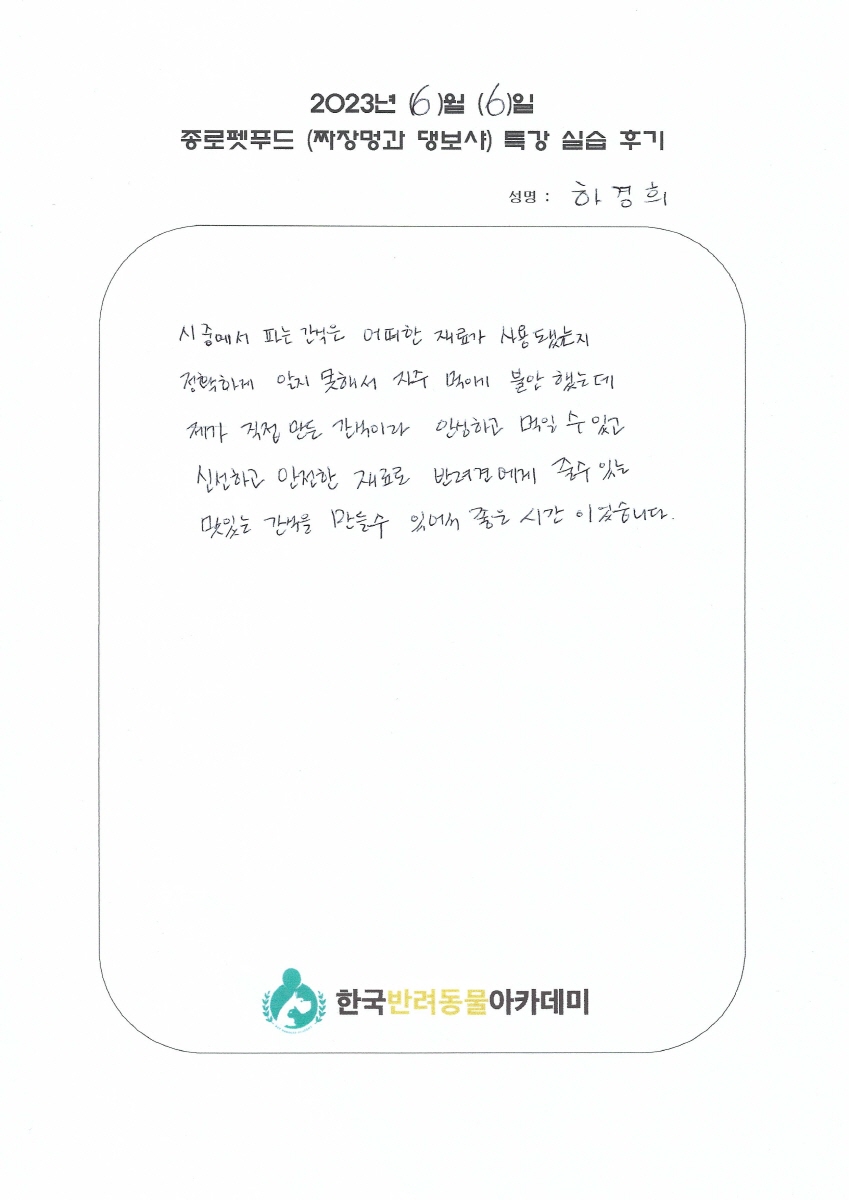 2023년 (6)월 (6)일
종로펫푸드 (짜장멍과 댕보샤) 특강 실습 후기
성명 : 하경희
시중에서 파는 간식은 어떠한 재료가 사용됐는지
정확하게 알지 못해서 자주 먹이기 불안 했는데
제가 직접 만든 간식이라 안심하고 먹일 수 있고
신선하고 안전한 재료로 반려견에게 줄수 있는
맛있는 간식을 만들수 있어서 좋은 시간 이었습니다.
한국반려동물아카데미